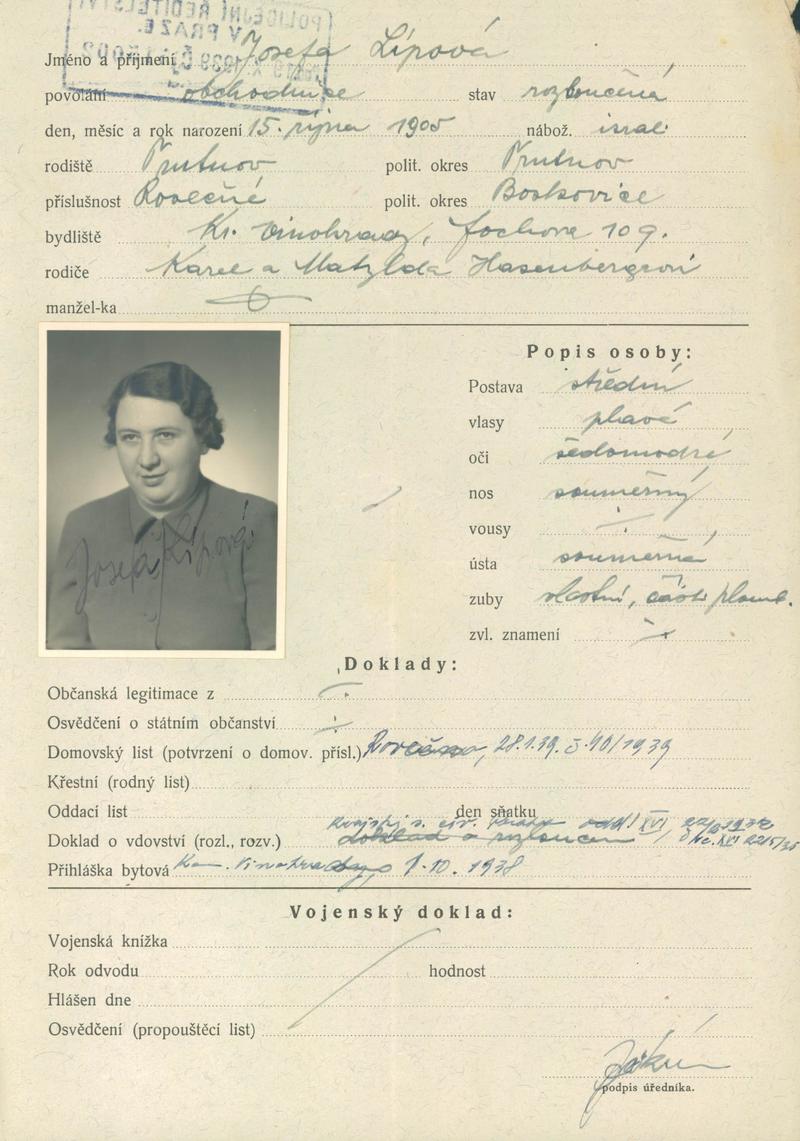 POLICEJNÍ ŘEDITELSTVÍ
V PRAZE
Jméno a příjmení Josefa Lípová
povolání obchodnice stav rozloučená
den, měsíc a rok narození 15. října 1905 nábož. israel
rodiště Trutnov polit. okres Trutnov
příslušnost Rovečné polit. okres Boskovice
bydliště Kr. Vinohrady, Fochova 109.
rodiče Karel a Matylda Hasenbergrovi
manžel-ka
Josefa Lípová
Popis osoby:
Postava střední
vlasy plavé
oči šedomodré
nos souměrný
vousy
ústa souměrná
zuby vlastní, část. plomb.
zvl. znamení
Doklady:
Občanská legitimace z
Osvědčení o státním občanství
Domovský list (potvrzení o domov. přísl.) Rovečno, 28.1.39. 340/1939
Křestní (rodný list)
Oddací list den sňatku
Doklad o vdovství (rozl., rozv.)
Přihláška bytová Kr. Vinohrady 1.10.1938
Vojenský doklad:
Vojenská knížka
Rok odvodu hodnost
Hlášen dne
Osvědčení (propouštěcí list)
podpis úředníka.